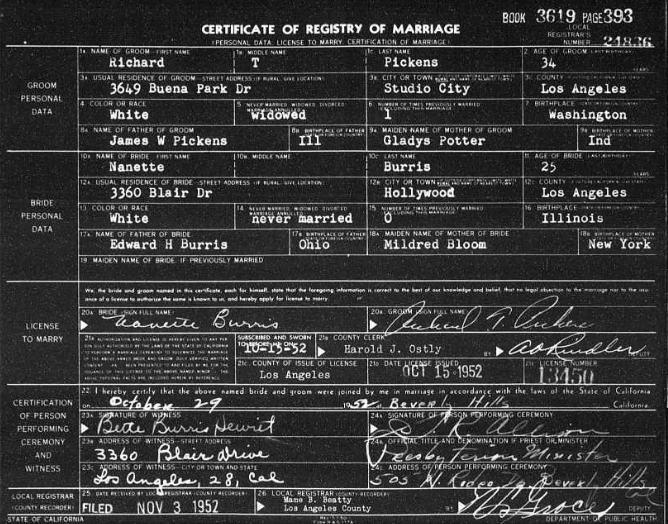 BOOK 3619 PAGE 393
CERTIFICATE OF REGISTRY OF MARRIAGE
LOCAL REGISTRAR'S NUMBER 24836
(PERSONAL DATA, LICENSE TO MARRY, CERTIFICATION OF MARRIAGE)
GROOM PERSONAL DATA
1A NAME OF GROOM—FIRST NAME Richard 1B MIDDLE NAME T 1C LAST NAME Pickens 2. AGE OF GROOM (LAST BIRTHDAY) 34 YEARS
3A USUAL RESIDENCE OF GROOM—STREET ADDRESS (IF RURAL, GIVE LOCATION) 3649 Buena Park Dr 3B. CITY OR TOWN Studio City 3C COUNTY Los Angeles
4 COLOR OR RACE White 5 NEVER MARRIED, WIDOWED, DIVORCED Widowed 6 NUMBER OF TIMES PREVIOUSLY MARRIED 1 7 BIRTHPLACE Washington
8A NAME OF FATHER OF GROOM James W Pickens 8B BIRTHPLACE OF FATHER Ill 9A MAIDEN NAME OF MOTHER OF GROOM Gladys Potter 9B BIRTHPLACE OF MOTHER Ind
BRIDE PERSONAL DATA
10A NAME OF BRIDE—FIRST NAME Nanette 10B MIDDLE NAME 10C LAST NAME Burris 11. AGE OF BRIDE (LAST BIRTHDAY) 25 YEARS
12A USUAL RESIDENCE OF BRIDE—STREET ADDRESS (IF RURAL, GIVE LOCATION) 3360 Blair Dr 12B CITY OR TOWN Hollywood 12C COUNTY Los Angeles
13 COLOR OR RACE White 14 NEVER MARRIED, WIDOWED, DIVORCED never married 15 NUMBER OF TIMES PREVIOUSLY MARRIED 0 16 BIRTHPLACE Illinois
17A NAME OF FATHER OF BRIDE Edward H Burris 17B BIRTHPLACE OF FATHER Ohio 18A MAIDEN NAME OF MOTHER OF BRIDE Mildred Bloom 18B BIRTHPLACE OF MOTHER New York
19 MAIDEN NAME OF BRIDE, IF PREVIOUSLY MARRIED
We, the bride and groom named in this certificate, each for himself, state that the foregoing information is correct to the best of our knowledge and belief, that no legal objection to the marriage nor to the issu-
ance of a license to authorize the same is known to us, and hereby apply for license to marry.
LICENSE TO MARRY
20A BRIDE (SIGN FULL NAME) Nanette Burris 20B GROOM (SIGN FULL NAME) Richard T. Pickens
SUBSCRIBED AND SWORN TO BEFORE ME ON 10-15-52 21B COUNTY CLERK Harold J. Ostly BY
21C COUNTY OF ISSUE OF LICENSE Los Angeles 21D DATE LICENSE ISSUED OCT 15 1952 21E LICENSE NUMBER 13450
CERTIFICATION OF PERSON PERFORMING CEREMONY AND WITNESS
22. I hereby certify that the above named bride and groom were joined by me in marriage in accordance with the laws of the State of California
on October 29 1952 Beverly Hills California.
23A SIGNATURE OF WITNESS Bette Burris Hewitt 24A SIGNATURE OF PERSON PERFORMING CEREMONY
23B ADDRESS OF WITNESS—STREET ADDRESS 3360 Blair Drive 24B OFFICIAL TITLE, AND DENOMINATION IF PRIEST OR MINISTER Presbyterian Minister
23C ADDRESS OF WITNESS—CITY OR TOWN AND STATE Los Angeles, 28, Cal 24C ADDRESS OF PERSON PERFORMING CEREMONY 505 N. Rodeo Dr Beverly Hills Cal
LOCAL REGISTRAR (COUNTY RECORDER)
25 DATE RECEIVED BY LOCAL REGISTRAR (COUNTY RECORDER) FILED NOV 3 1952 26 LOCAL REGISTRAR (COUNTY RECORDER) Mame B. Beatty Los Angeles County BY DEPUTY
STATE OF CALIFORNIA DEPARTMENT OF PUBLIC HEALTH